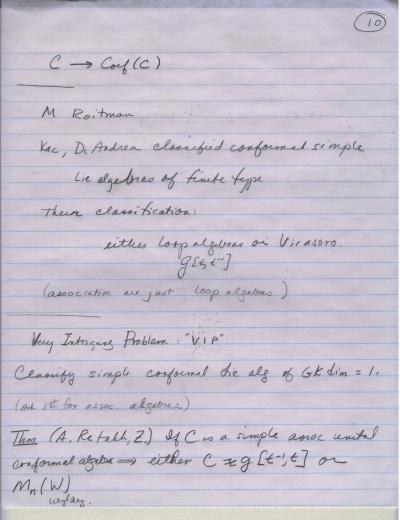 10
C → Coef(C)
M Roitman
Kac, D'Andrea classified conformal simple
Lie algebras of finite type
Their classification:
either loop algebras or Virasoro.
g[t, t⁻¹]
(associative are just loop algebras)
Very Intriguing Problem: "V.I.P"
Classify simple conformal Lie alg of GKdim = 1.
(Ask 1st for assoc. algebras.)
Thm (A. Retakh, Z.) If C is a simple assoc unital
conformal algebra ⟹ either C ≅ g[t⁻¹, t] or
Mn(W)